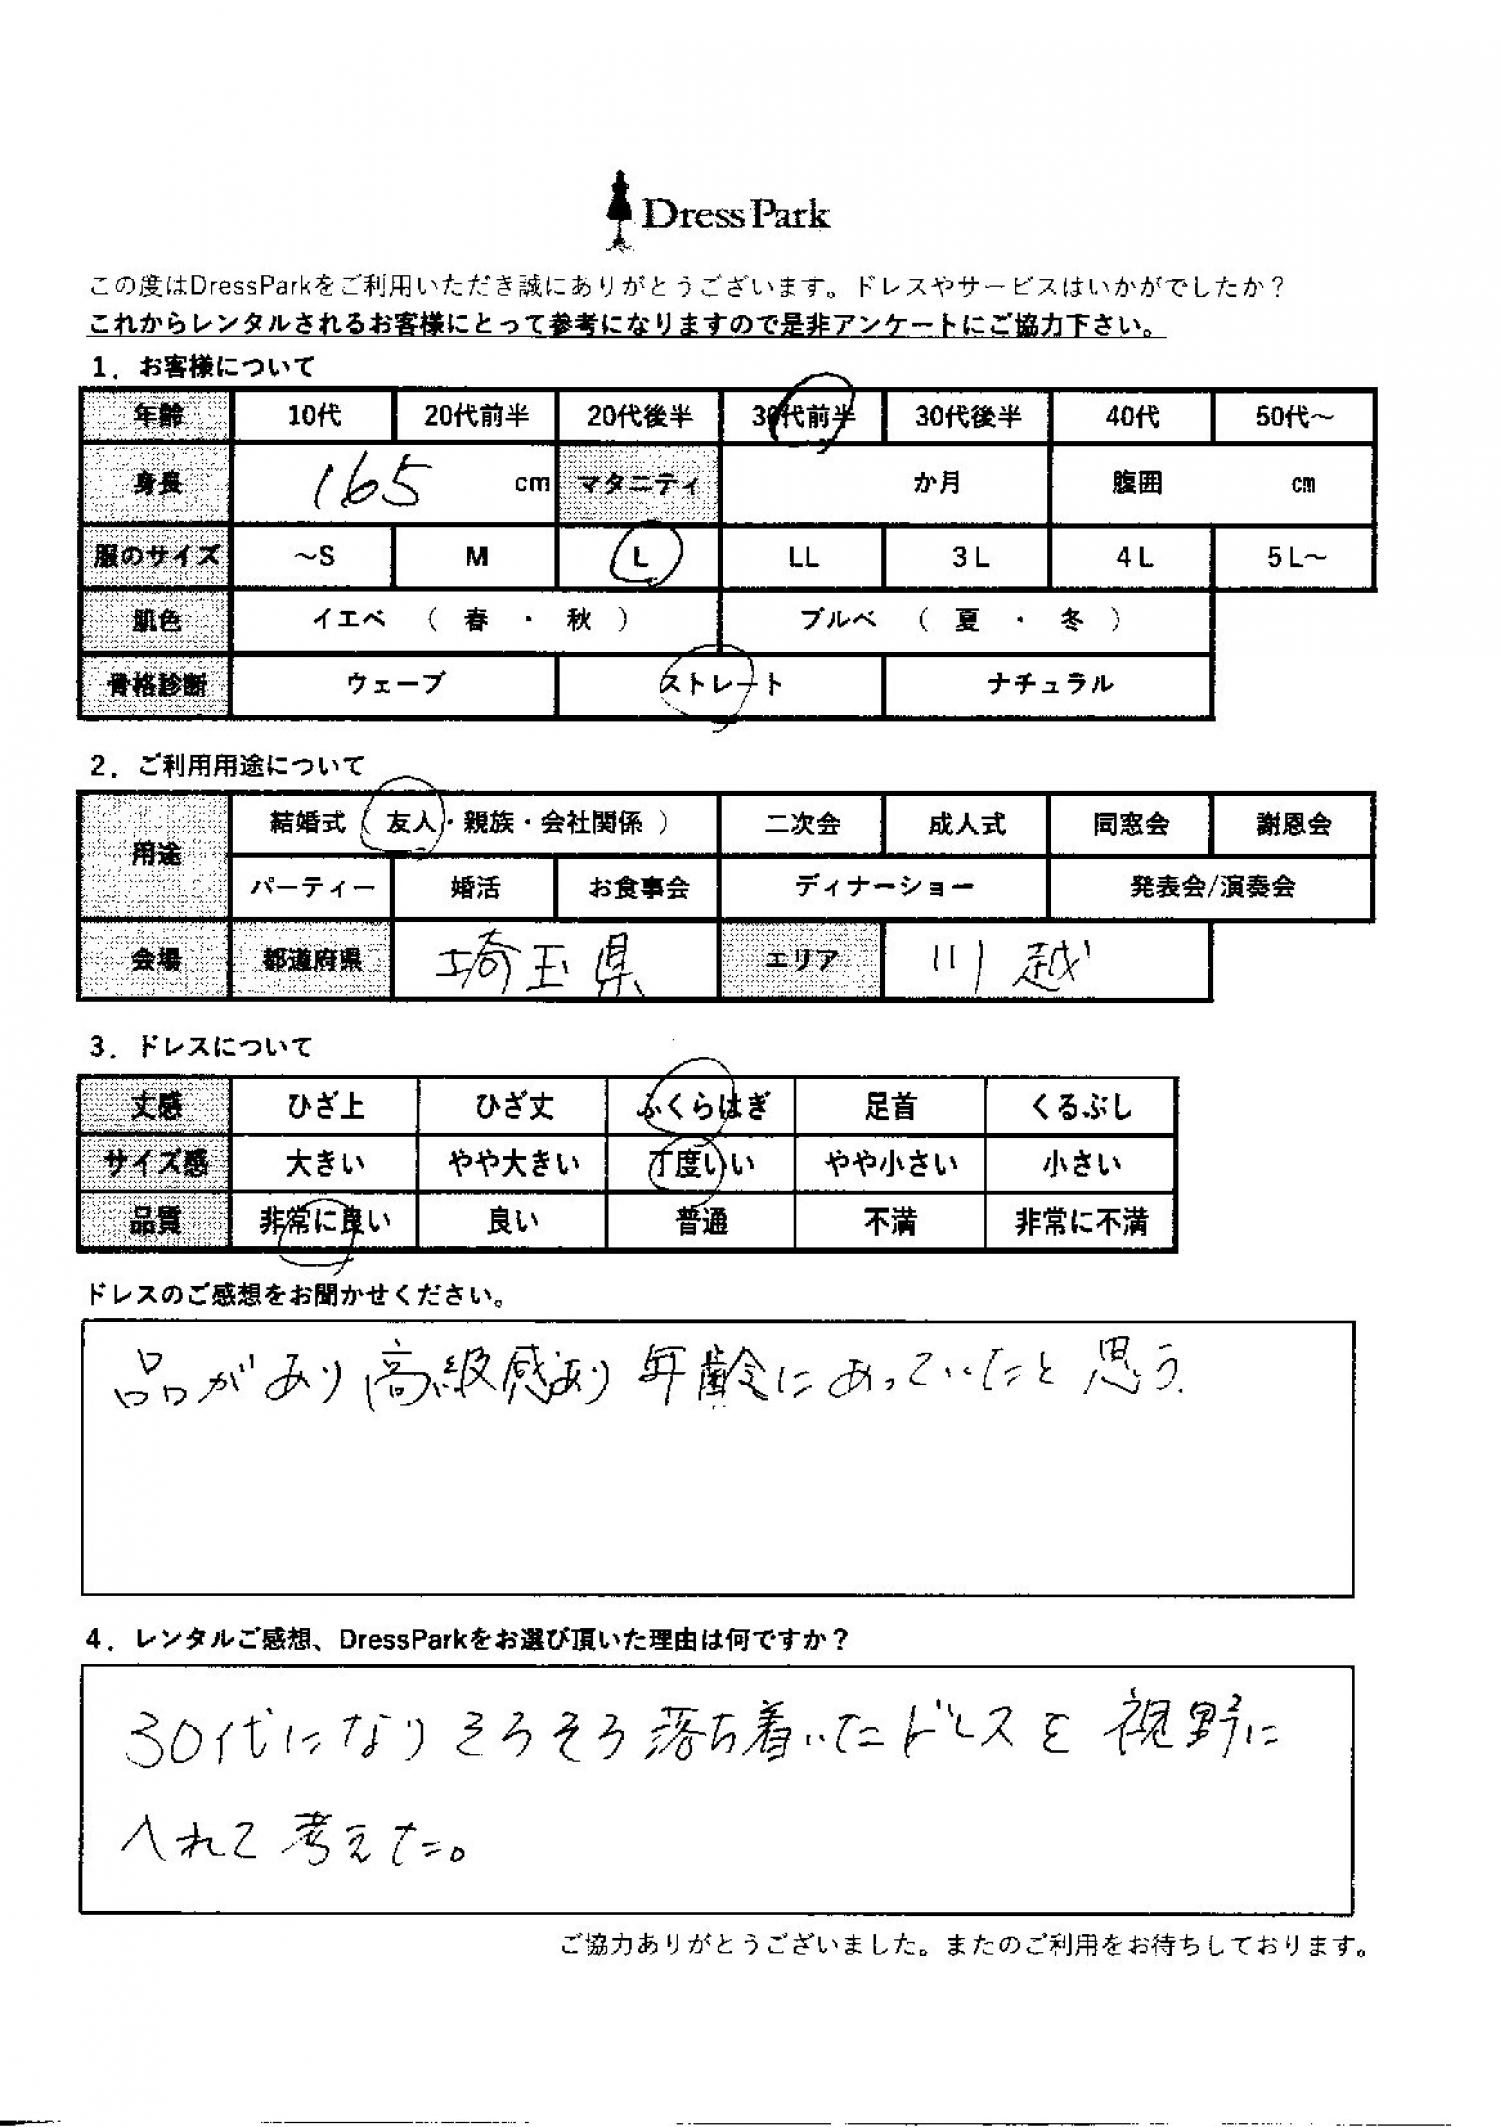 DressPark
この度はDressParkをご利用いただき誠にありがとうございます。ドレスやサービスはいかがでしたか？
これからレンタルされるお客様にとって参考になりますので是非アンケートにご協力下さい。
1．お客様について
年齢 10代 20代前半 20代後半 30代前半 30代後半 40代 50代～
身長 165 cm マタニティ か月 腹囲 cm
服のサイズ ～S M L LL 3L 4L 5L～
肌色 イエベ （ 春 ・ 秋 ） ブルベ （ 夏 ・ 冬 ）
骨格診断 ウェーブ ストレート ナチュラル
2．ご利用用途について
用途 結婚式（ 友人・親族・会社関係 ） 二次会 成人式 同窓会 謝恩会
パーティー 婚活 お食事会 ディナーショー 発表会/演奏会
会場 都道府県 埼玉県 エリア 川越
3．ドレスについて
丈感 ひざ上 ひざ丈 ふくらはぎ 足首 くるぶし
サイズ感 大きい やや大きい 丁度いい やや小さい 小さい
品質 非常に良い 良い 普通 不満 非常に不満
ドレスのご感想をお聞かせください。
品があり高級感あり年齢にあっていたと思う.
4．レンタルご感想、DressParkをお選び頂いた理由は何ですか？
30代になりそろそろ落ち着いたドレスを視野に
入れて考えた。
ご協力ありがとうございました。またのご利用をお待ちしております。